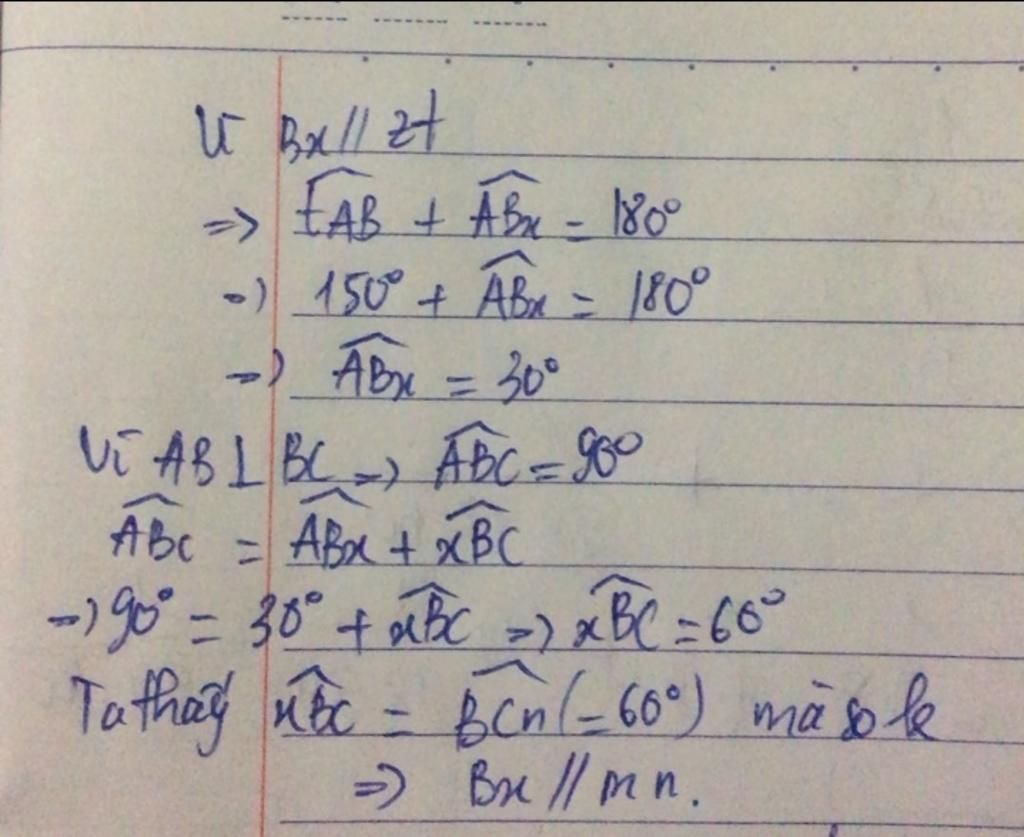 Vì Bx // zt
=> \widehat{tAB} + \widehat{ABx} = 180°
=> 150° + \widehat{ABx} = 180°
=> \widehat{ABx} = 30°
Vì AB ⊥ BC => \widehat{ABC} = 90°
\widehat{ABC} = \widehat{ABx} + \widehat{xBC}
=> 90° = 30° + \widehat{xBC} => \widehat{xBC} = 60°
Ta thấy \widehat{xBC} = \widehat{BCn} (= 60°) mà so le
=> Bx // mn.